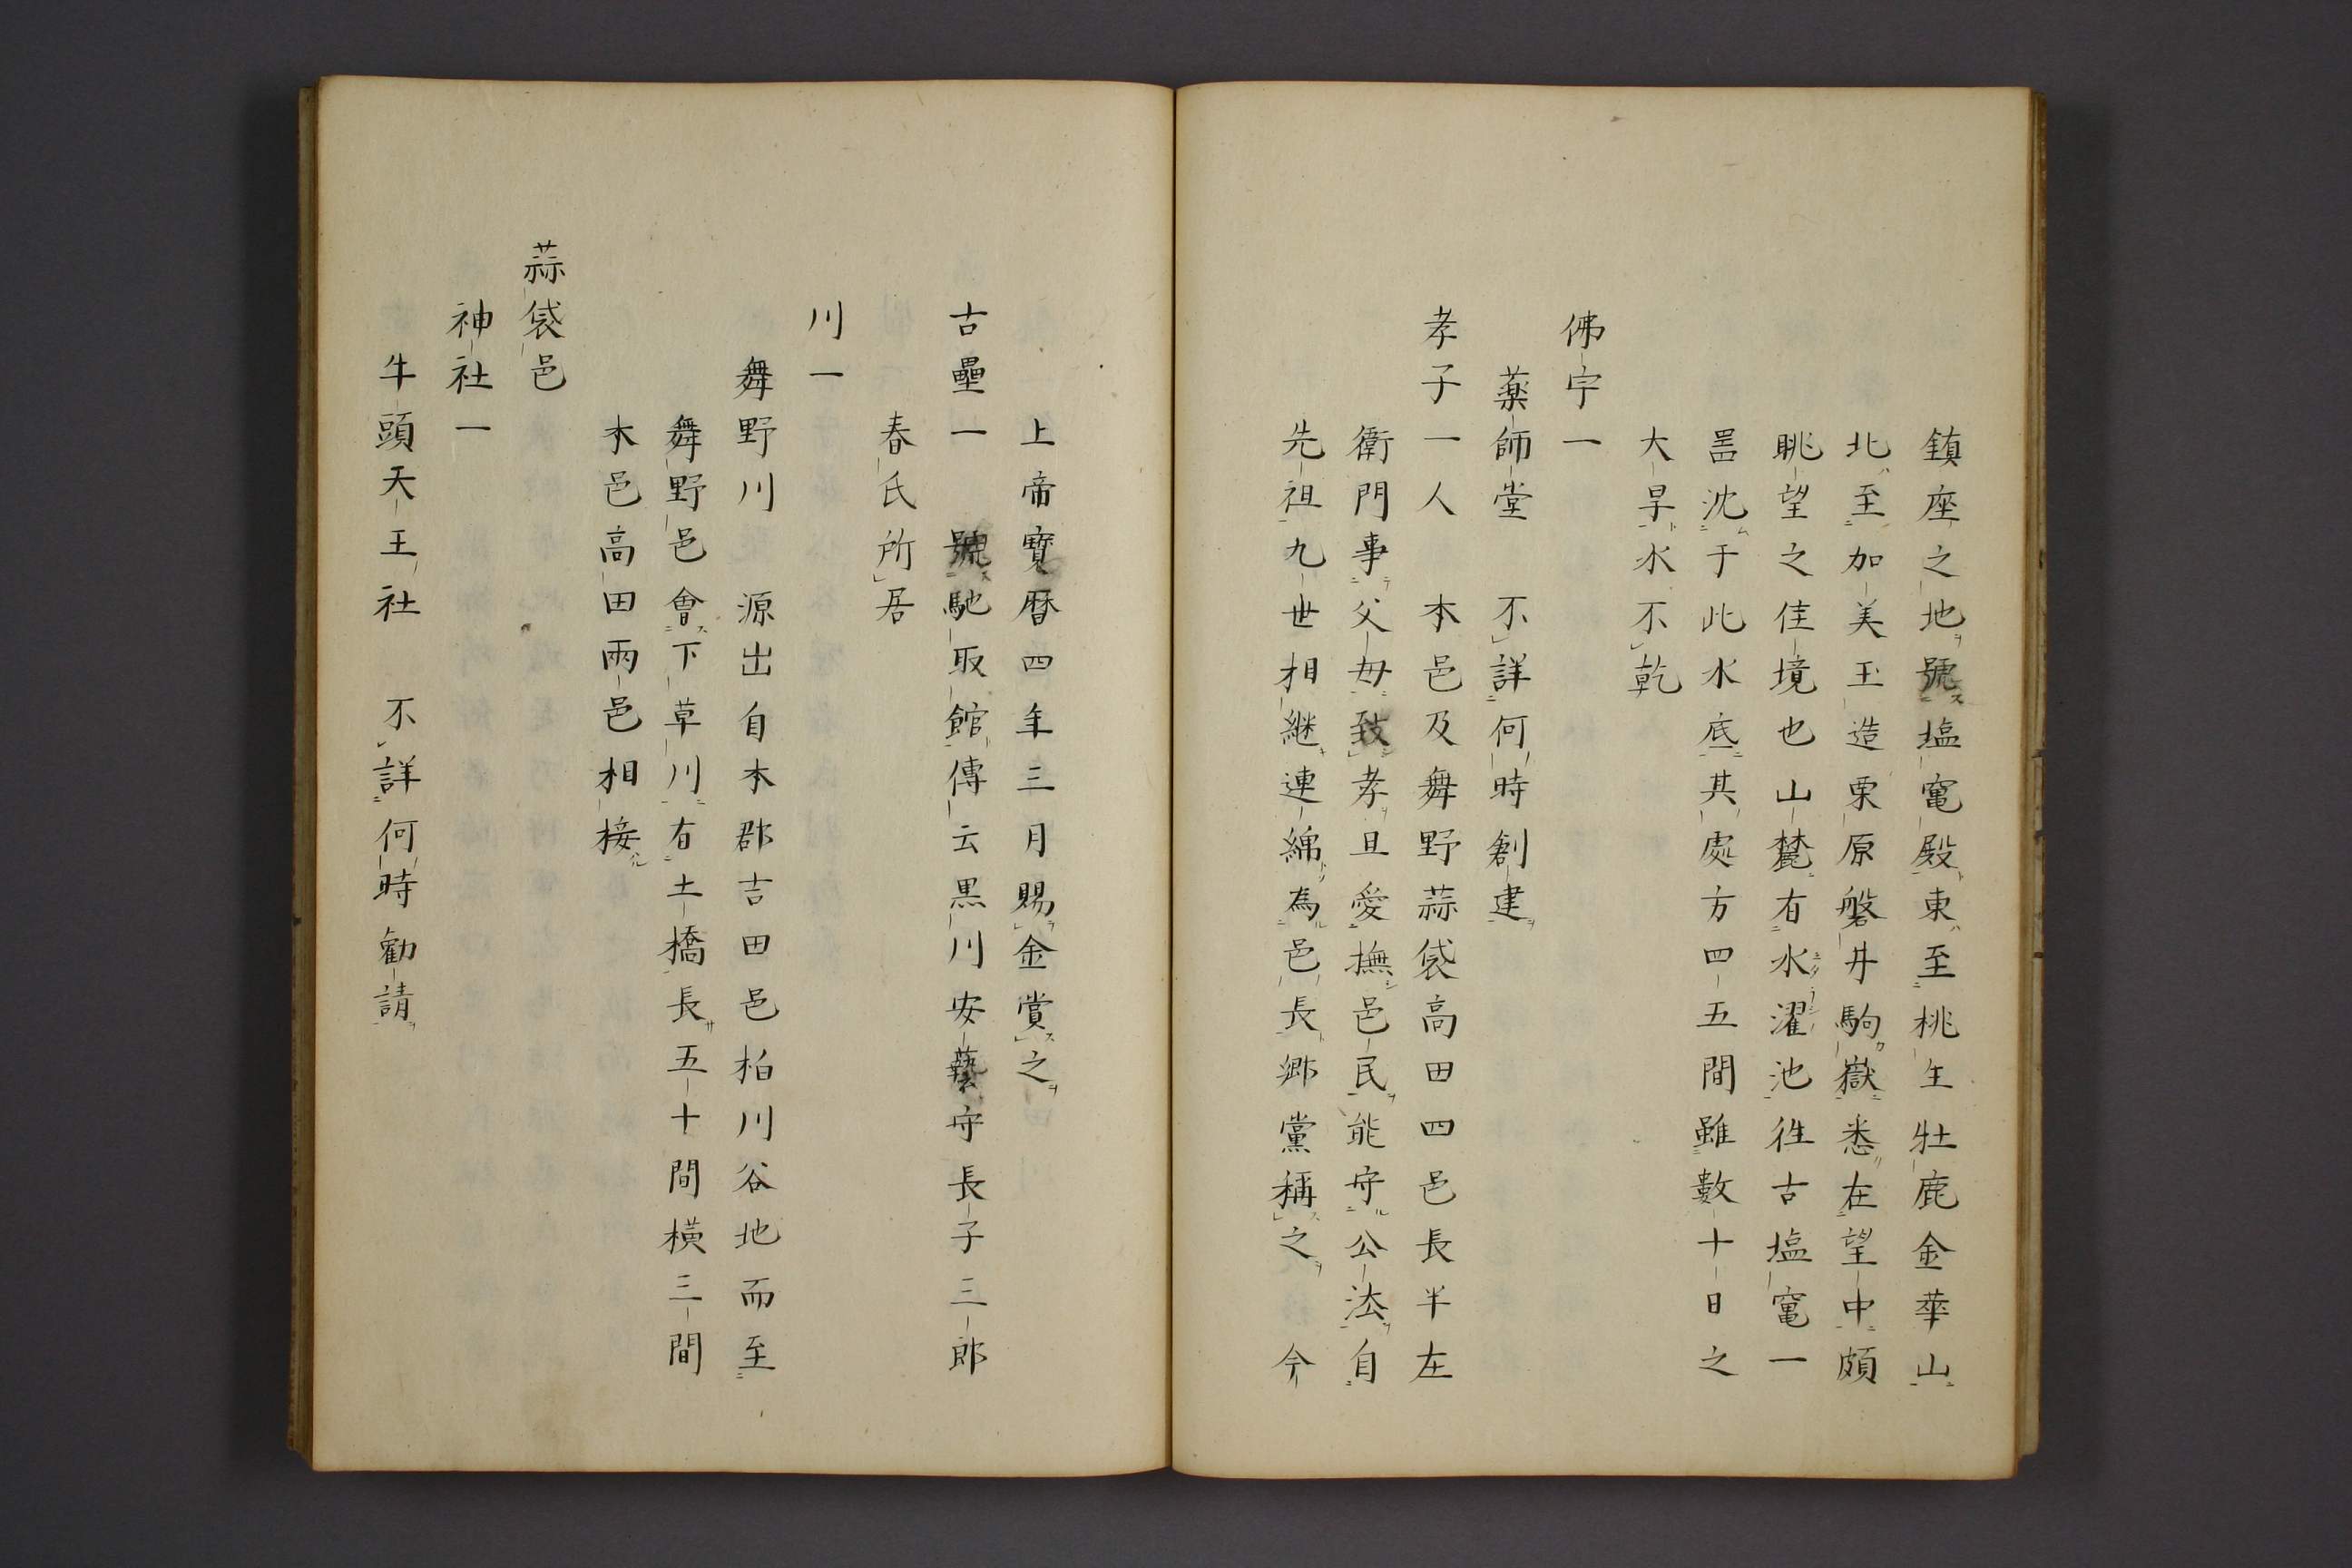 鎮座之地號塩竃殿東至桃生牡鹿金華山
北至加美玉造栗原磐井駒嶽悉在望中頗
眺望之佳境也山麓有水濯池徃古塩竃一
沈于此水底其處方四五間雖數十日之
大旱水不乾
佛宇一
薬師堂 不詳何時創建
孝子一人 本邑及舞野蒜袋高田四邑長半左
衛門事父母致孝且愛撫邑民能守公法自
先祖九世相継連綿為邑長郷黨稱之今
上帝寶暦四年三月賜金賞之
古壘一 號馳取館傳云黒川安藝守長子三郎
春氏所居
川一
舞野川 源出自本郡吉田邑柏川谷地而至
舞野邑會下草川有土橋長五十間横三間
本邑高田兩邑相接
蒜袋邑
神社一
牛頭天王社 不詳何時勸請